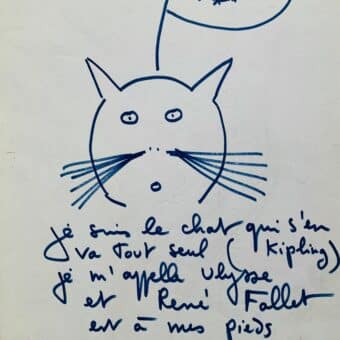 je suis le chat qui s'en
va tout seul (Kipling)
je m'appelle Ulysse
et René Fallet
est à mes pieds